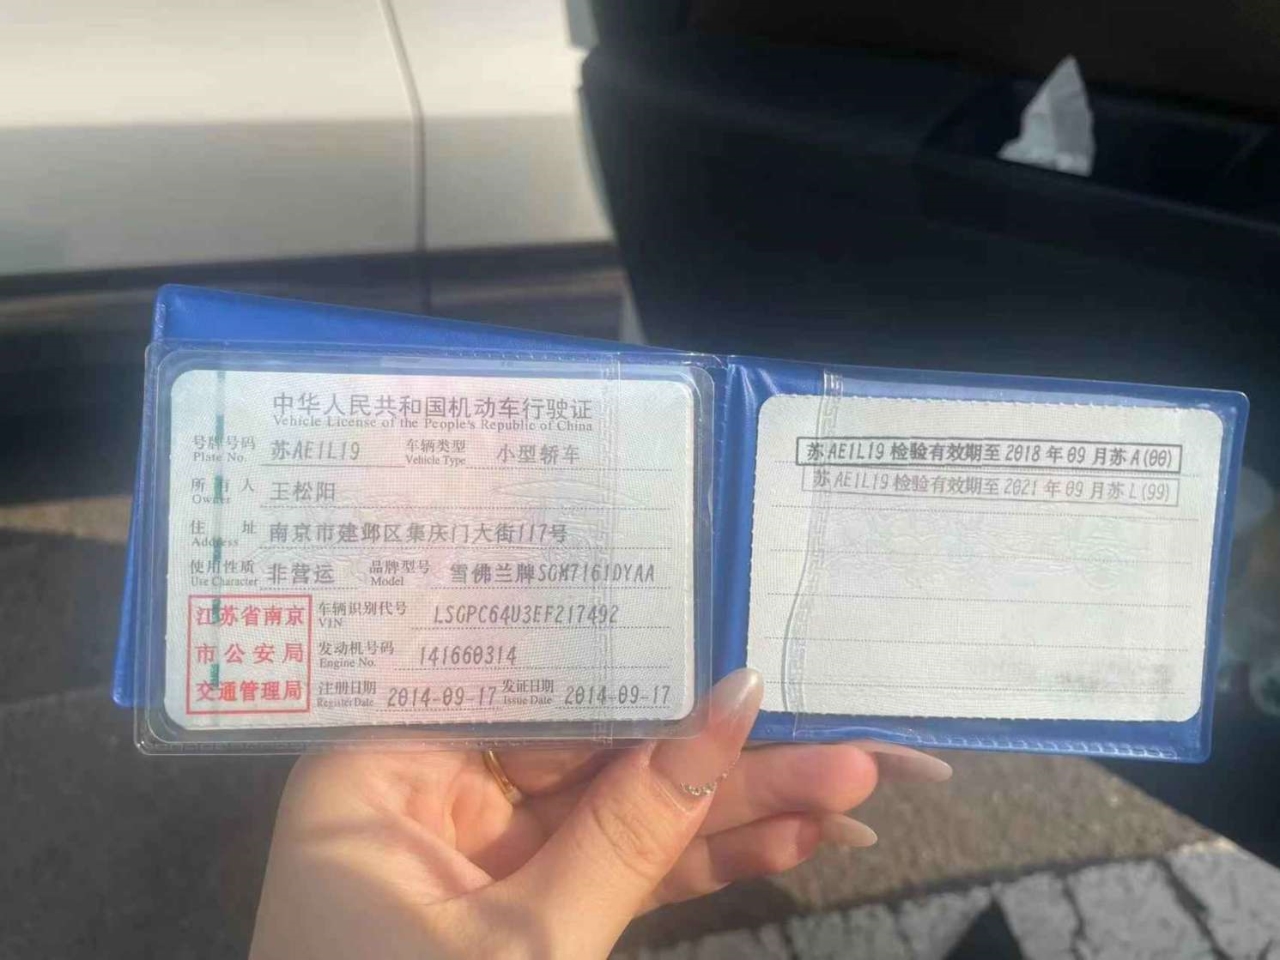 中华人民共和国机动车行驶证
Vehicle License of the People's Republic of China
号牌号码 苏AE1L19 车辆类型 小型轿车
Plate No. Vehicle Type
所有人 王松阳
Owner
住址 南京市建邺区集庆门大街117号
Address
使用性质 非营运 品牌型号 雪佛兰牌SGM7161DYAA
Use Character Model
江苏省南京
市公安局
交通管理局
车辆识别代号 LSGPC64U3EF217492
VIN
发动机号码 141660314
Engine No.
注册日期 2014-09-17 发证日期 2014-09-17
Register Date Issue Date
苏AE1L19检验有效期至2018年09月苏A(00)
苏AE1L19检验有效期至2021年09月苏L(99)